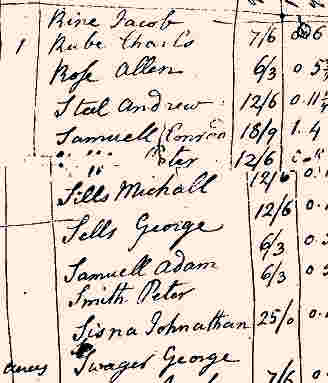 Rine Jacob
1 Rube Charls 7/6 6
Rose Allen 6/3 0.5
Steel Andrew 12/6 0.11
Samuell Conrad 18/9 1.4
" " Peter 12/6
Sills Michall 12/6 0.
Sells George 12/6 0.
6/3 0.
Samuell Adam 6/3 0
Smith Peter
Sisna Johnathan 25/0 0.
acres Swager George
7/6 0.